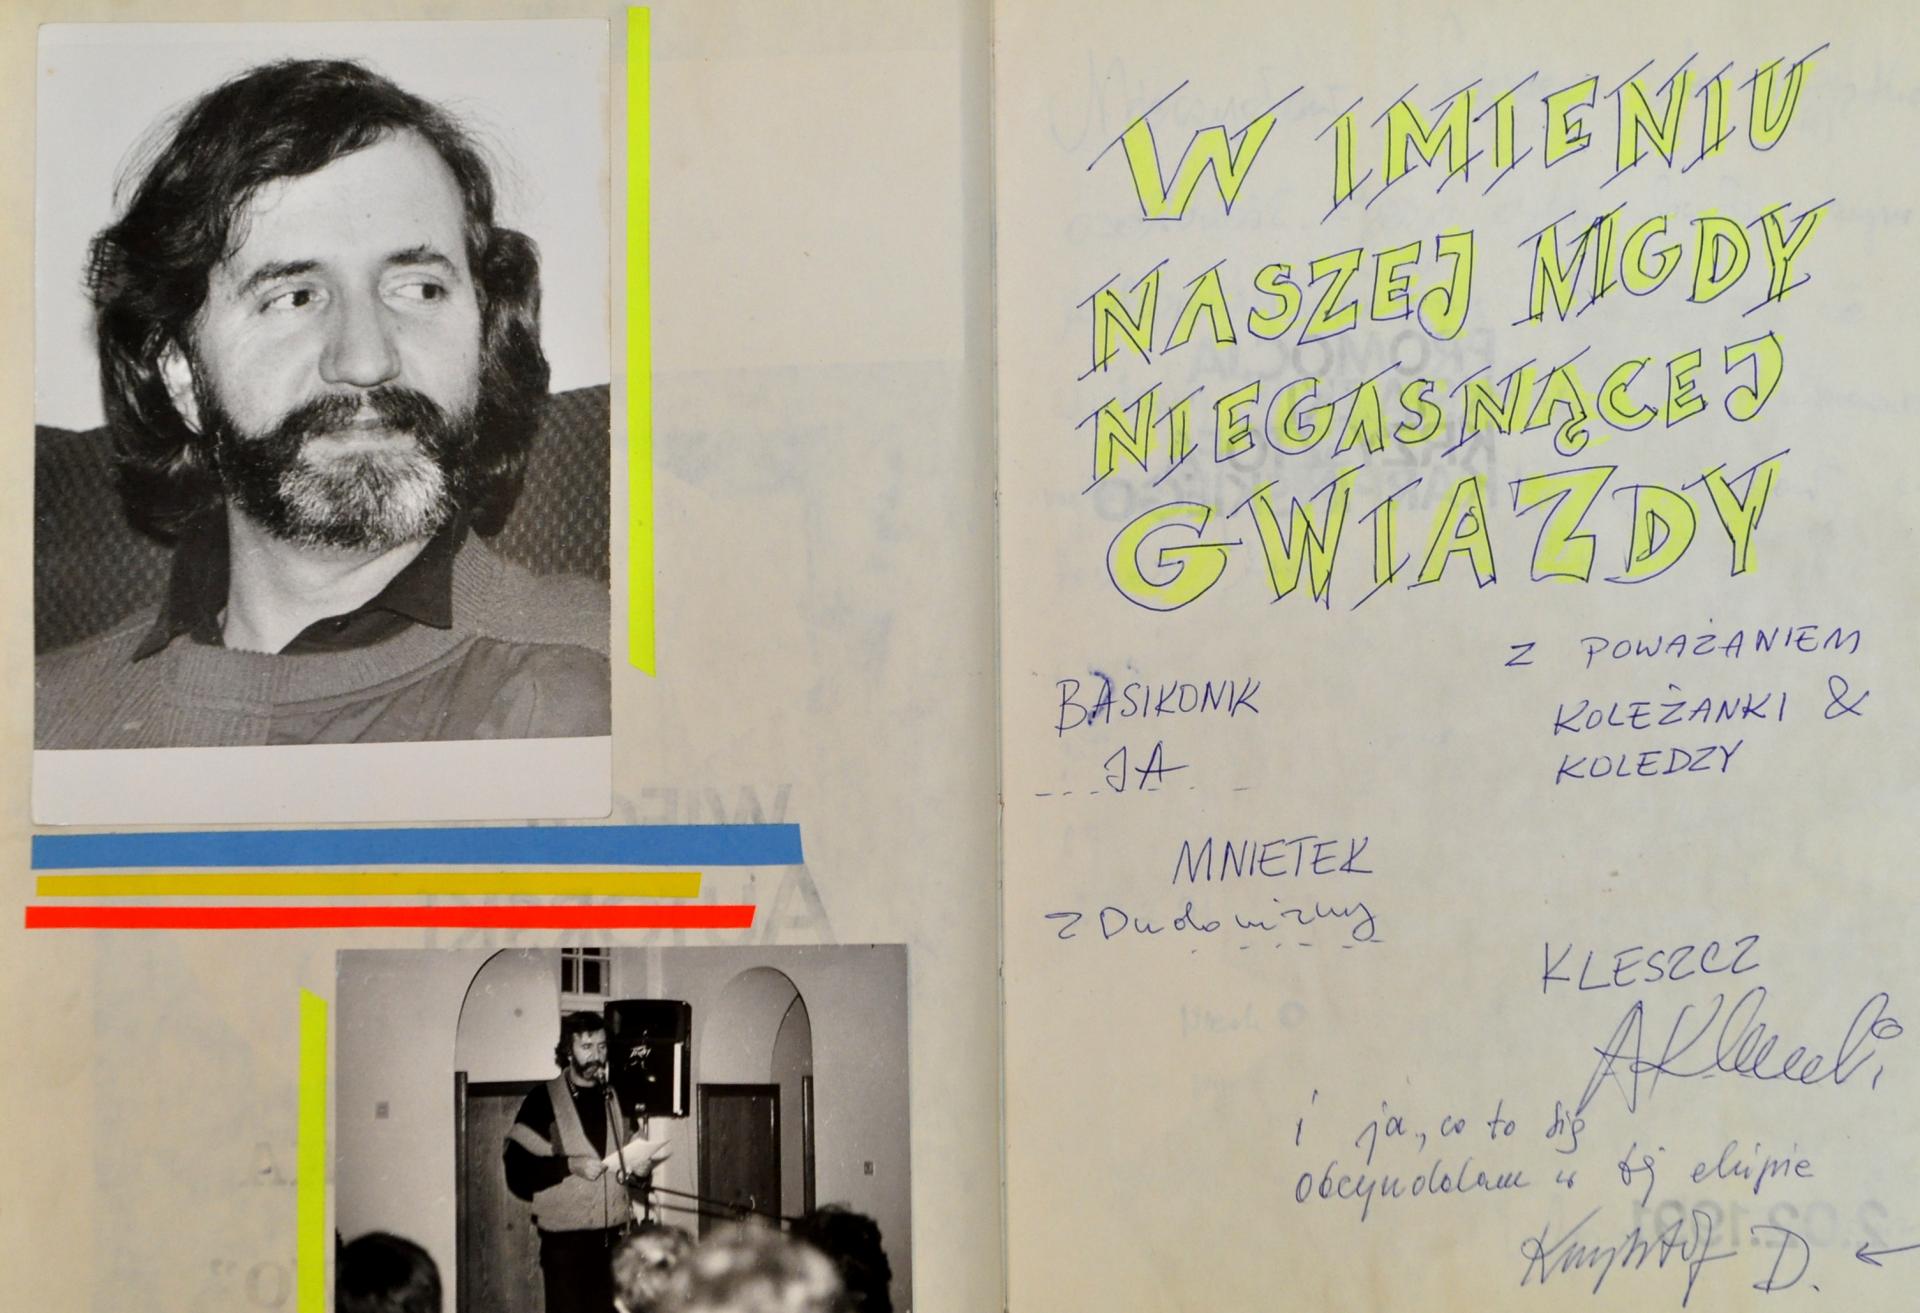 W IMIENIU
NASZEJ NIGDY
NIEGASNĄCEJ
GWIAZDY
Z POWAŻANIEM
KOLEŻANKI &
KOLEDZY
BASIKONIK
JA
MNIETEK
z Dudowizny
KLESZCZ
i ja, co to się
obcyndalam w tej ekipie
Krzysztof D. ←
2.02.1991